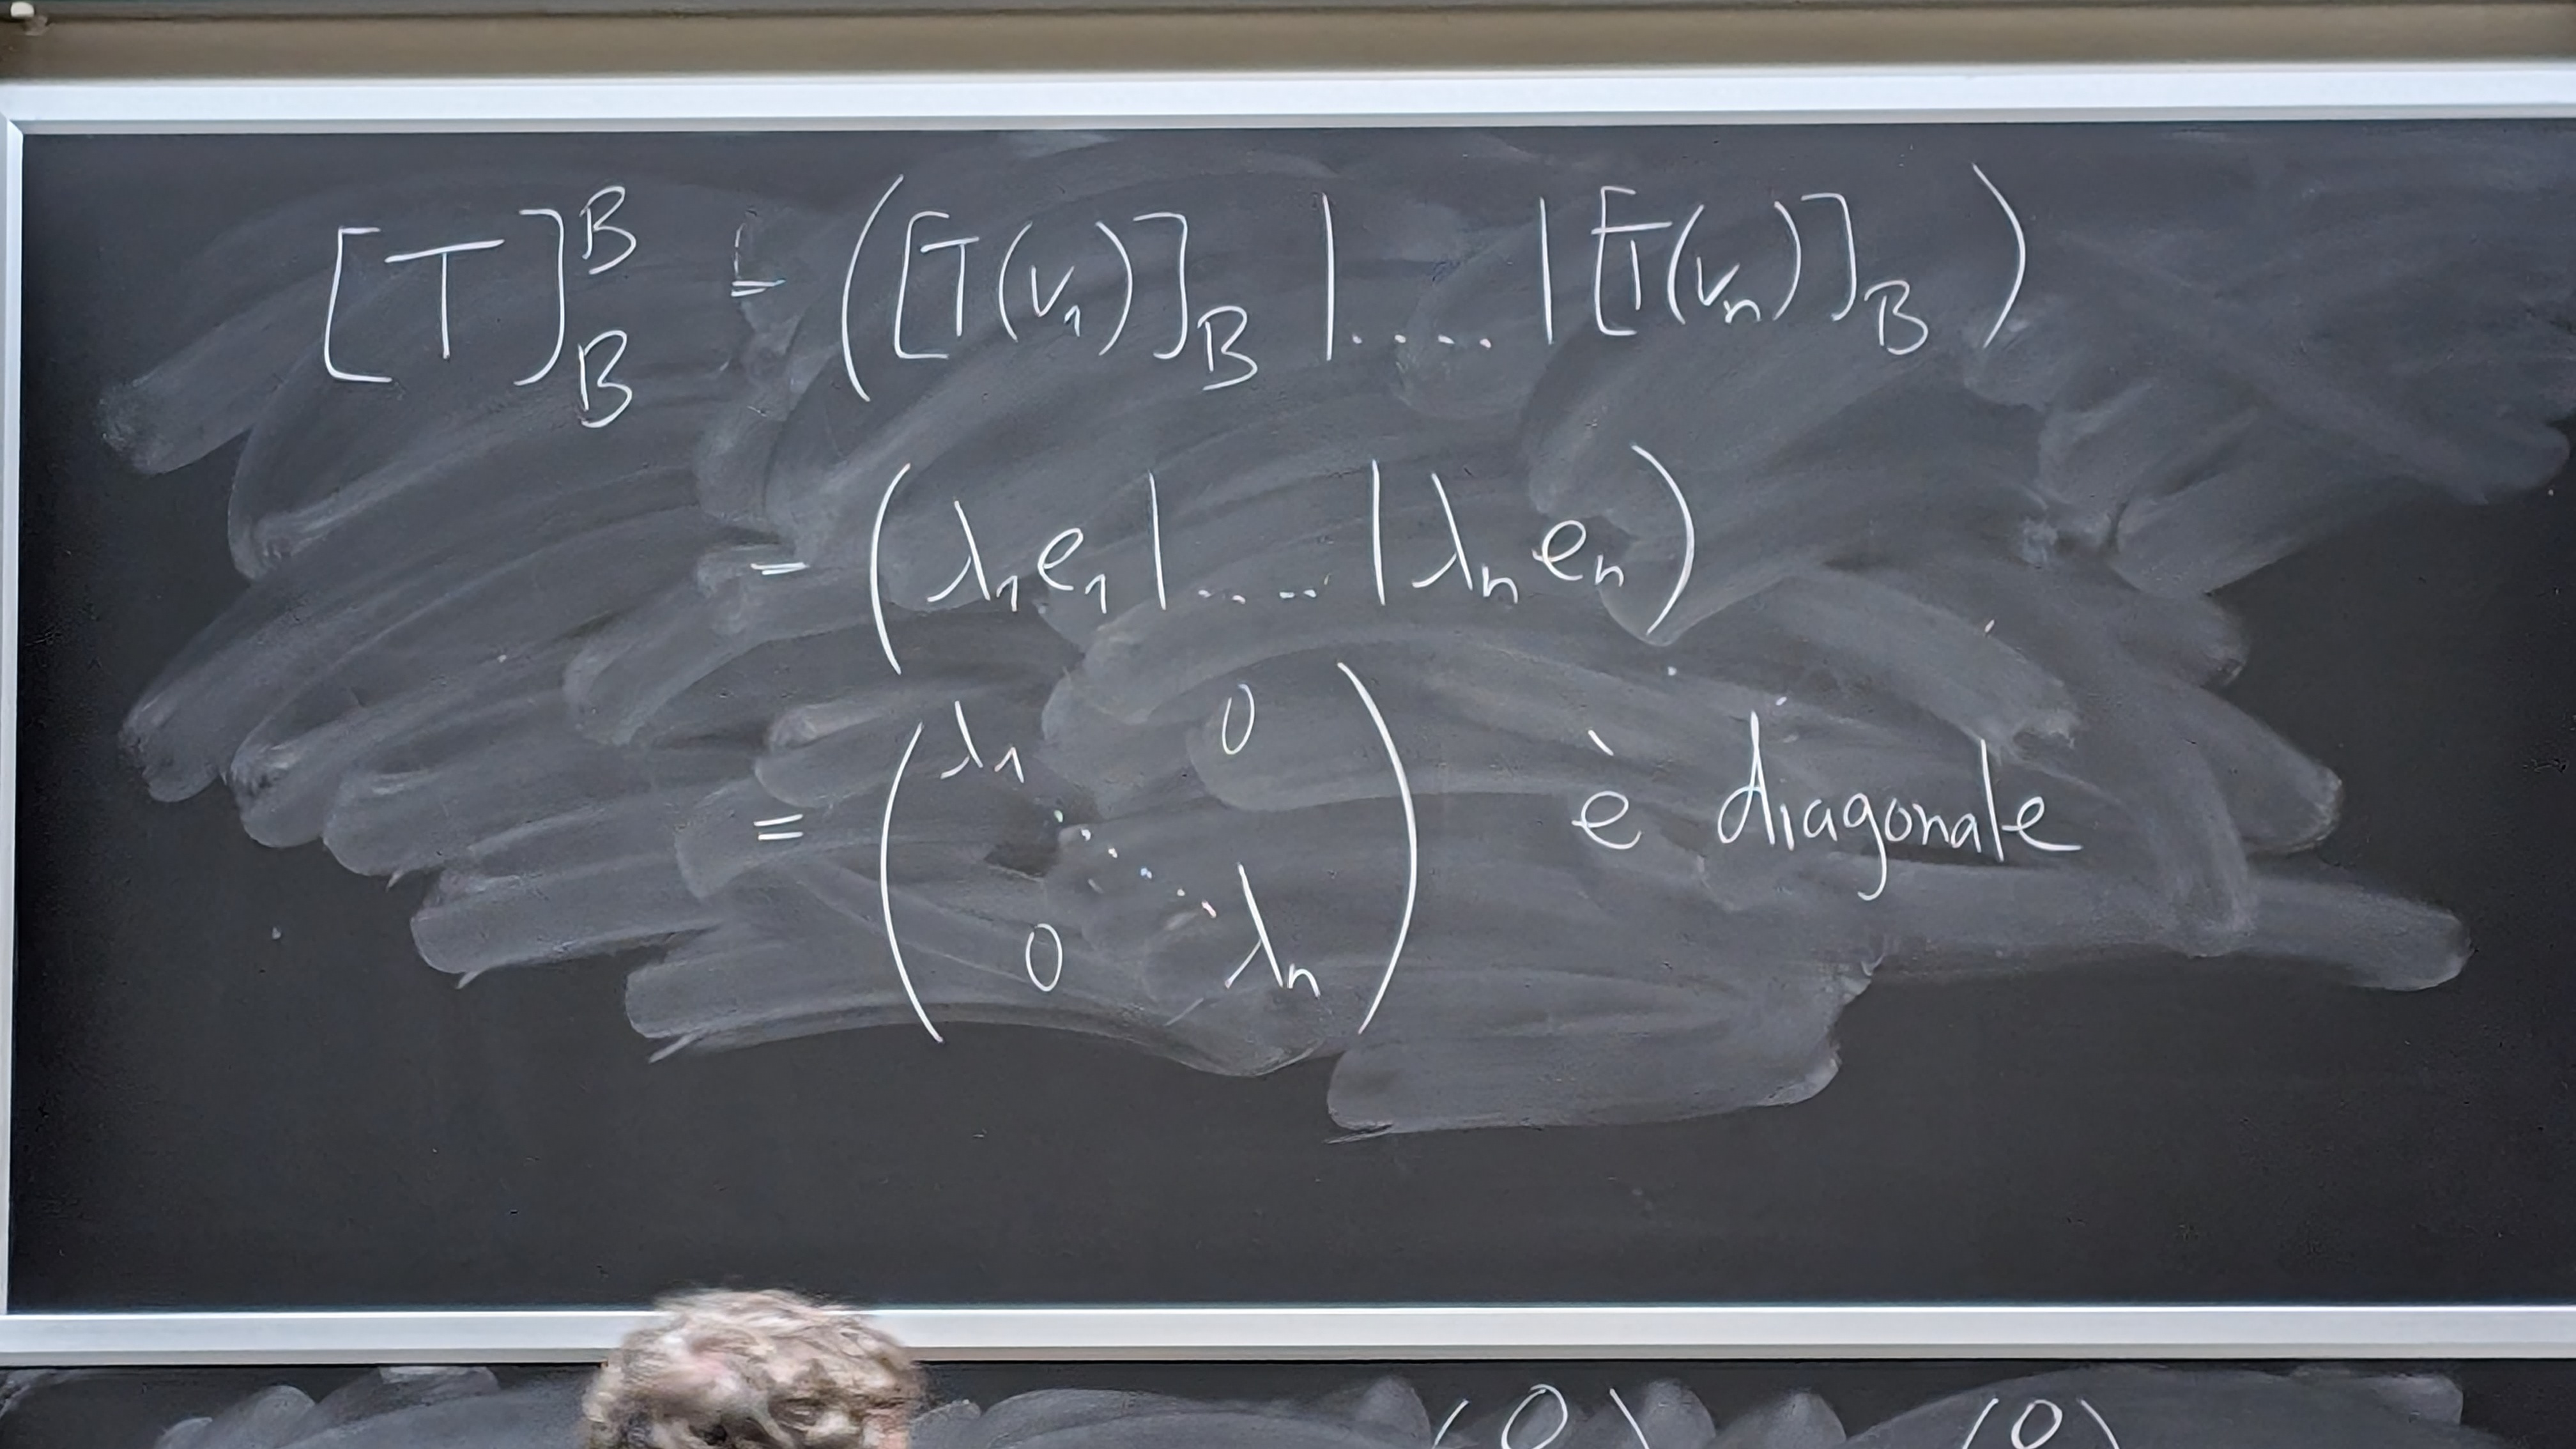 [T]_B^B = ([T(v₁)]_B | ..... | [T(vₙ)]_B)
= (λ₁e₁ | ..... | λₙeₙ)
= (λ₁ 0
⋱
0 λₙ) è diagonale
(0) (0)